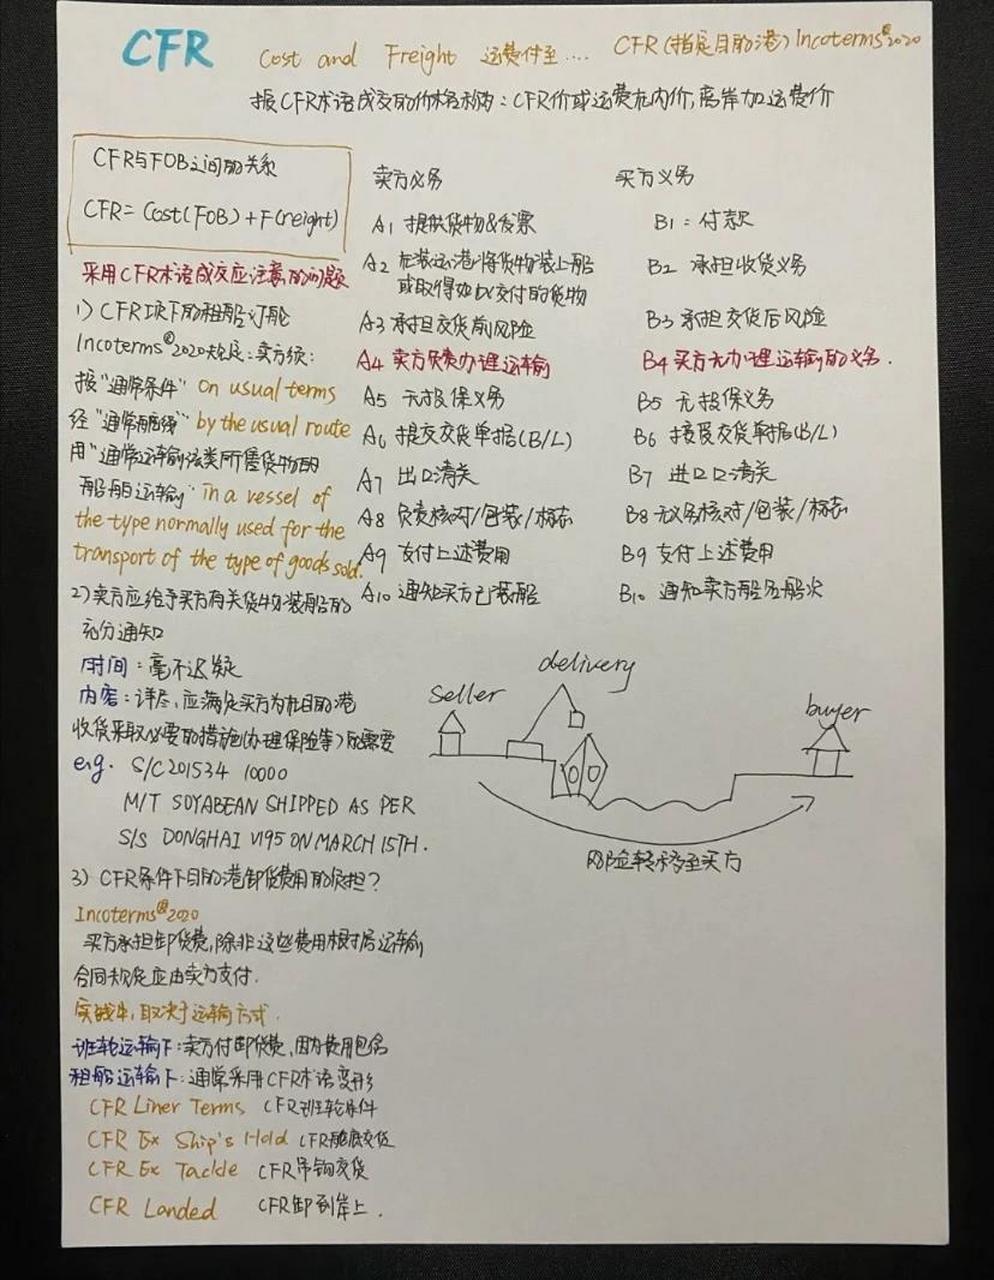 CFR Cost and Freight 运费付至.... CFR(指定目的港)Incoterms®2020
按CFR术语成交的价格称为:CFR价或运费在内价,离岸加运费价
CFR与FOB之间的关系
CFR=Cost(FOB)+F(reight)
采用CFR术语成交应注意的问题
1)CFR项下的租船订舱
Incoterms®2020规定:卖方须:
按"通常条件" on usual terms
经"通常航线" by the usual route
用"通常运输该类所售货物的
船舶运输" in a vessel of
the type normally used for the
transport of the type of goods sold.
2)卖方应给予买方有关货物装船的
充分通知
时间:毫不迟疑
内容:详尽,应满足买方为在目的港
收货采取必要的措施(办理保险等)的需要
e.g. S/C201534 10000
M/T SOYABEAN SHIPPED AS PER
S/S DONGHAI V195 ON MARCH 15TH.
3)CFR条件下目的港卸货费用的负担?
Incoterms®2020
买方承担卸货费,除非这些费用根据运输
合同规定应由卖方支付.
实践中,取决于运输方式.
班轮运输下:卖方付卸货费,因为费用包含
租船运输下:通常采用CFR术语变形
CFR Liner Terms CFR班轮条件
CFR Ex Ship's Hold CFR舱底交货
CFR Ex Tackle CFR吊钩交货
CFR Landed CFR卸到岸上.
卖方义务
A1 提供货物&发票
A2 在装运港将货物装上船
或取得如此交付的货物
A3 承担交货前风险
A4 卖方负责办理运输
A5 无投保义务
A6 提交交货单据(B/L)
A7 出口清关
A8 负责核对/包装/标志
A9 支付上述费用
A10 通知买方已装船
买方义务
B1:付款
B2 承担收货义务
B3 承担交货后风险
B4 买方无办理运输的义务.
B5 无投保义务
B6 接受交货单据(B/L)
B7 进口清关
B8 无义务核对/包装/标志
B9 支付上述费用
B10 通知卖方船名船次
seller
delivery
buyer
风险转移至买方